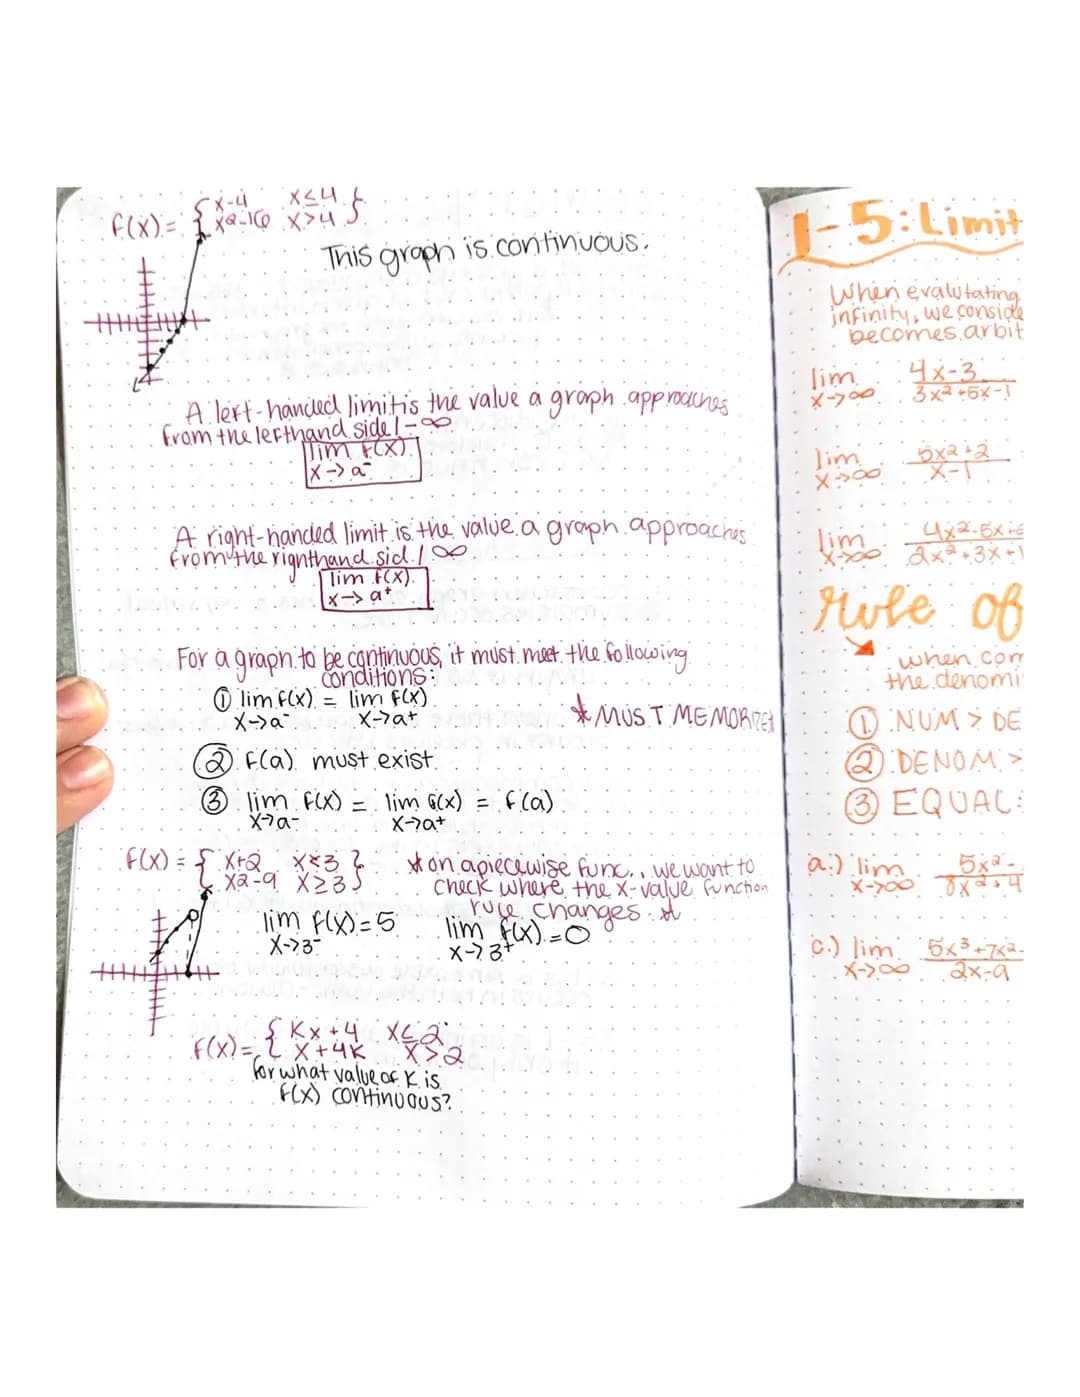 f(x) = { x-4 x≤4 }
{ x2-16 x>4 }
This graph is continuous.
A left-handed limit is the value a graph approaches
from the lefthand side / -∞
lim f(x)
x→a⁻
A right-handed limit is the value a graph approaches
from the righthand sid. / ∞
lim f(x)
x→a⁺
For a graph to be continuous, it must meet the following
conditions:
① lim f(x) = lim f(x)
x→a⁻ x→a+
* MUST MEMORIZE
② f(a) must exist.
③ lim f(x) = lim f(x) = f(a)
x→a- x→a+
f(x) = { x+2 x<3 }
{ x2-9 x≥3 }
* on a piecewise func., we want to
check where the x-value function
rule changes *
lim f(x) = 5 lim f(x) = 0
x→3⁻ x→3⁺
f(x) = { Kx+4 x≤2
{ x+4K x>2
for what value of K is
f(x) continuous?
1-5: Limit
When evalutating
infinity, we conside
becomes arbit
lim 4x-3
x→∞ 3x²+5x-1
lim 5x²+2
x→∞ x-1
lim 4x²-5x+
x→∞ 2x²+3x+1
rule of
when com
the denomi
① NUM > DE
② DENOM >
③ EQUAL:
a.) lim 5x²-
x→∞ 8x²+4
c.) lim 5x³+7x²-
x→∞ 2x-9